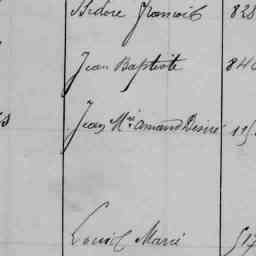 Isidore francois 828
Jean Baptiste 840
Jean Mie amand Desiré
Louis Marie 517